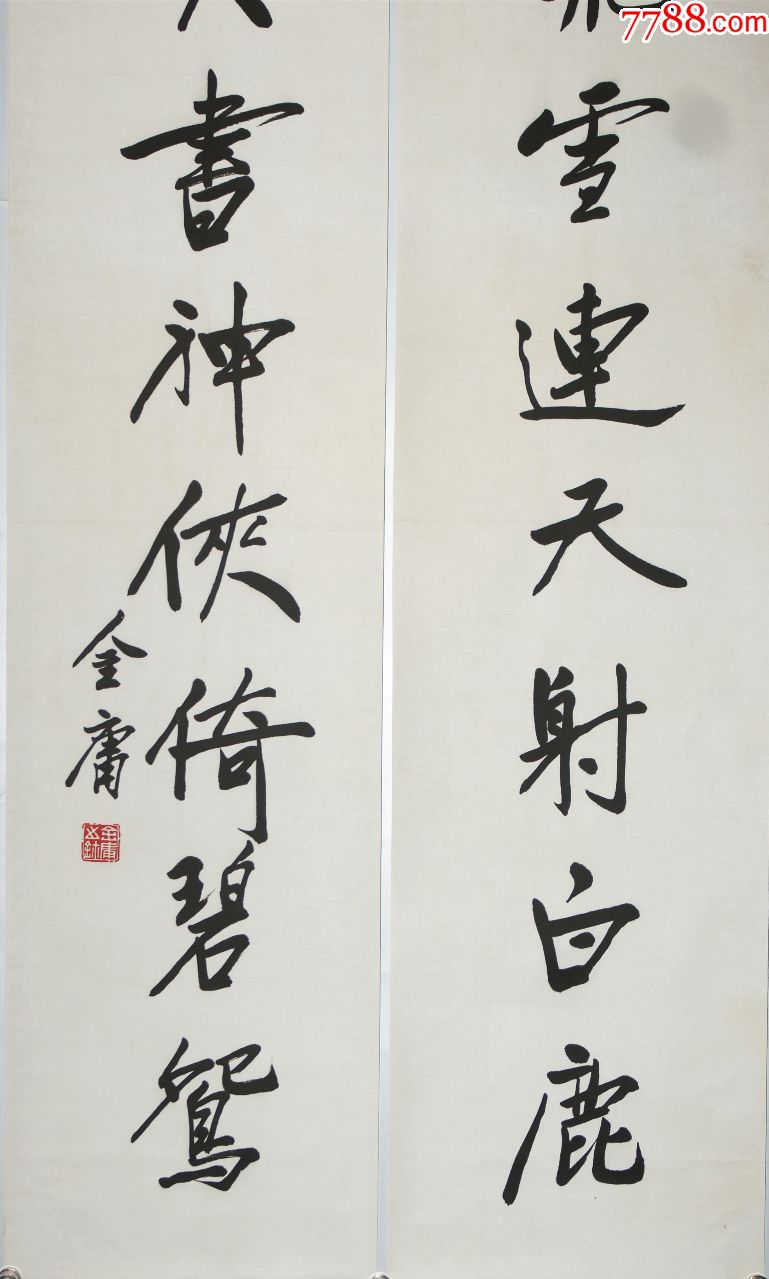 雪連天射白鹿
書神俠倚碧鴛
金庸
7788.com